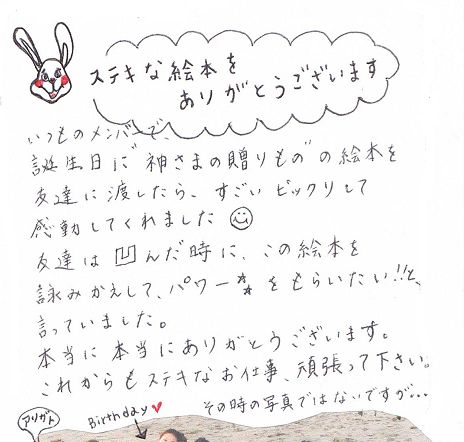 ステキな絵本を
ありがとうございます
いつものメンバーで、
誕生日に"神さまの贈りもの"の絵本を
友達に渡したら、すごいビックリして
感動してくれました
友達は凹んだ時に、この絵本を
詠みかえして、パワーをもらいたい!!と、
言っていました。
本当に本当にありがとうございます。
これからもステキなお仕事、頑張って下さい。
その時の写真ではないですが…
アリガト
Birthday